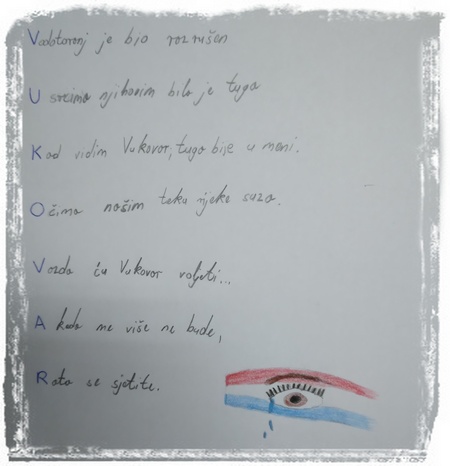 Vodotoranj je bio razrušen
U srcima njihovim bila je tuga
Kad vidim Vukovar, tuga bije u meni.
Očima našim teku rijeke suza.
Vazda ću Vukovar voljeti...
A kada me više ne bude,
Rata se sjetite.